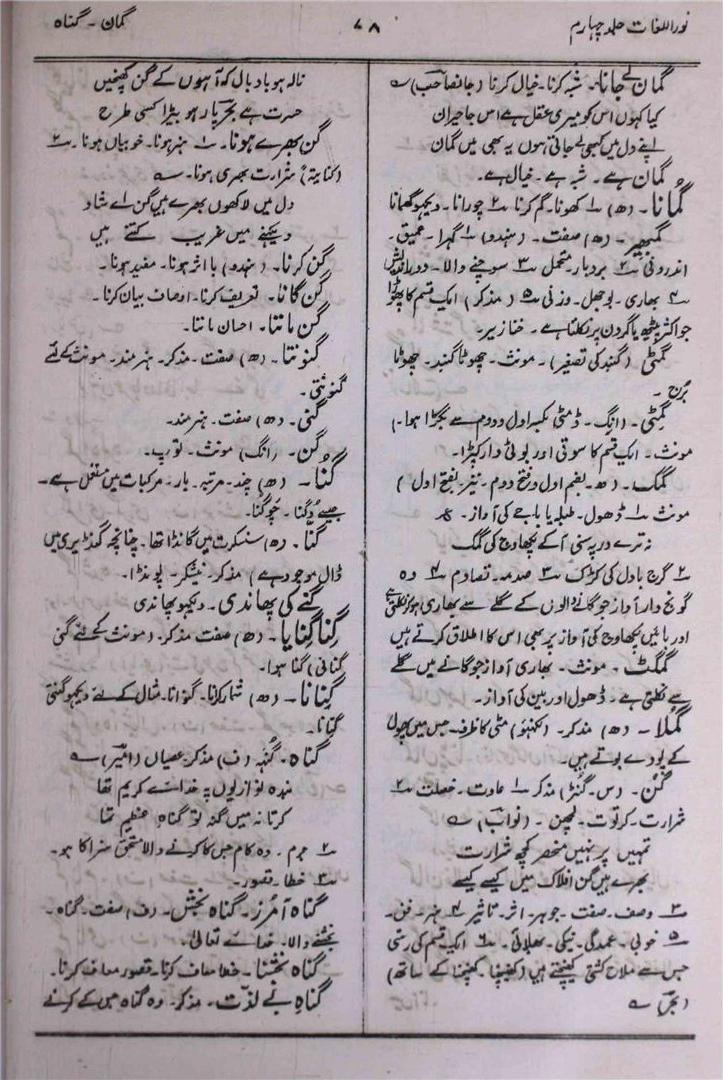 نوراللغات جلد چہارم
۷۸
گمان - گناہ
گمان لے جانا۔ شبہ کرنا۔ خیال کرنا (جانصاحب) ؎
کیا کہوں اس کو میری عقل ہے اس جا حیران
اپنے دل میں کبھی لے جاتی ہوں یہ بھی میں گمان
گمان ہے۔ شبہ ہے۔ خیال ہے۔
گمانا۔ (ھ) ۱ کھونا۔ گم کرنا ۲ چورانا۔ دیکھو گھمانا
گمبھیر۔ (ھ) صفت۔ (ہندو) ۱ گہرا۔ عمیق۔
اندرونی ۲ بردبار۔ متحمل ۳ سوچنے والا۔ دوراندیش
۴ بھاری۔ بوجھل۔ وزنی ۵ (مذکر) ایک قسم کا پھوڑا
جو اکثر پیٹھ یا گردن پر نکلتا ہے۔ خنازیر۔
گمٹی (گنبد کی تصغیر)۔ مونث۔ چھوٹا گنبد۔ چھوٹا
برج۔
گمٹی۔ (انگ۔ ڈمٹی بکسر اول و دوم سے بگڑا ہوا۔)
مونث۔ ایک قسم کا سوتی اور بوٹی دار کپڑا۔
گمک۔ (ھ۔ بضم اول و فتح دوم۔ نیز بفتح اول)
مونث ۱ ڈھول۔ طبلہ یا باجے کی آواز۔ ع
نہ ترے در پہ سنی آکے پکھاوج کی گمک
۲ گرج بادل کی کڑک ۳ صدمہ۔ تصادم ۴ وہ
گونج دار آواز جو گانے والوں کے گلے سے بھاری ہو کر نکلتی ہے
اور بائیں پکھاوج کی آواز پر بھی اس کا اطلاق کرتے ہیں
گمگٹ۔ مونث۔ بھاری آواز جو گانے میں گلے
سے نکلتی ہے۔ ڈھول اور بین کی آواز۔
گملا۔ (ھ) مذکر۔ (لکھنؤ) مٹی کا ظرف۔ جس میں پھول
کے پودے بوتے ہیں۔
گن۔ (س۔ گنڑ) مذکر ۱ عادت۔ خصلت ۲
شرارت۔ کرتوت۔ لچھن۔ (نواب) ؎
تمہیں پر نہیں منحصر کچھ شرارت
بھرے ہیں گن افلاک میں کیسے کیسے
۳ وصف۔ صفت۔ جوہر۔ اثر۔ تاثیر ۴ ہنر۔ فن۔
۵ خوبی۔ عمدگی۔ نیکی۔ بھلائی۔ ۶ ایک قسم کی رسی
جس سے ملاح کشتی کھینچتے ہیں (کھینچنا۔ کھنچنا کے ساتھ)
(بحر) ؎
نالہ ہو بادبان کہ آہوں کے گن کھنچیں
حسرت ہے بحر پار ہو بیڑا کسی طرح
گن بھرے ہونا۔ ۱ ہنر ہونا۔ خوبیاں ہونا۔ ۲
(کنایۃً) شرارت بھری ہونا۔ ؎
دل میں لاکھوں بھرے ہیں گن اے شاد
دیکھنے میں غریب کتنے ہیں
گن کرنا۔ (ہندو) با اثر ہونا۔ مفید ہونا۔
گن گانا۔ تعریف کرنا۔ اوصاف بیان کرنا۔
گن ماننا۔ احسان ماننا۔
گنونتا۔ (ھ) صفت۔ مذکر۔ ہنر مند۔ مونث کے لئے
گنونتی۔
گنی۔ (ھ) صفت۔ ہنر مند۔
گن۔ (انگ) مونث۔ توپ۔
گنا۔ (ھ) چند۔ مرتبہ۔ بار۔ مرکبات میں مستعمل ہے۔
جیسے دگنا۔ چوگنا۔
گنا۔ (ھ) سنسکرت میں گانڈا تھا۔ چنانچہ گنڈیری میں
ڈال موجود ہے) مذکر۔ نیشکر۔ پونڈا۔
گنے کی پھاندی۔ دیکھو پھاندی
گنا گنایا۔ (ھ) صفت مذکر۔ (مونث کے لئے گنی
گنائی) گنا ہوا۔
گنانا۔ (ھ) شمار کرنا۔ گنوانا۔ مثال کے لئے دیکھو گنتی
گنانا۔
گناہ۔ گنہ۔ (ف) مذکر۔ عصیاں (امیر) ؎
بندہ نوازیوں پہ خدائے کریم تھا
کرتا نہ میں گنہ تو گناہِ عظیم تھا
۲ جرم۔ وہ کام جس کا کرنے والا مستحق سزا کا ہو۔
۳ خطا۔ قصور۔
گناہ آمرز۔ گناہ بخش۔ (ف) صفت۔ گناہ۔
بخشنے والا۔ خدائے تعالیٰ۔
گناہ بخشنا۔ خطا معاف کرنا۔ قصور معاف کرنا۔
گناہِ بے لذت۔ مذکر۔ وہ گناہ جس کے کرنے